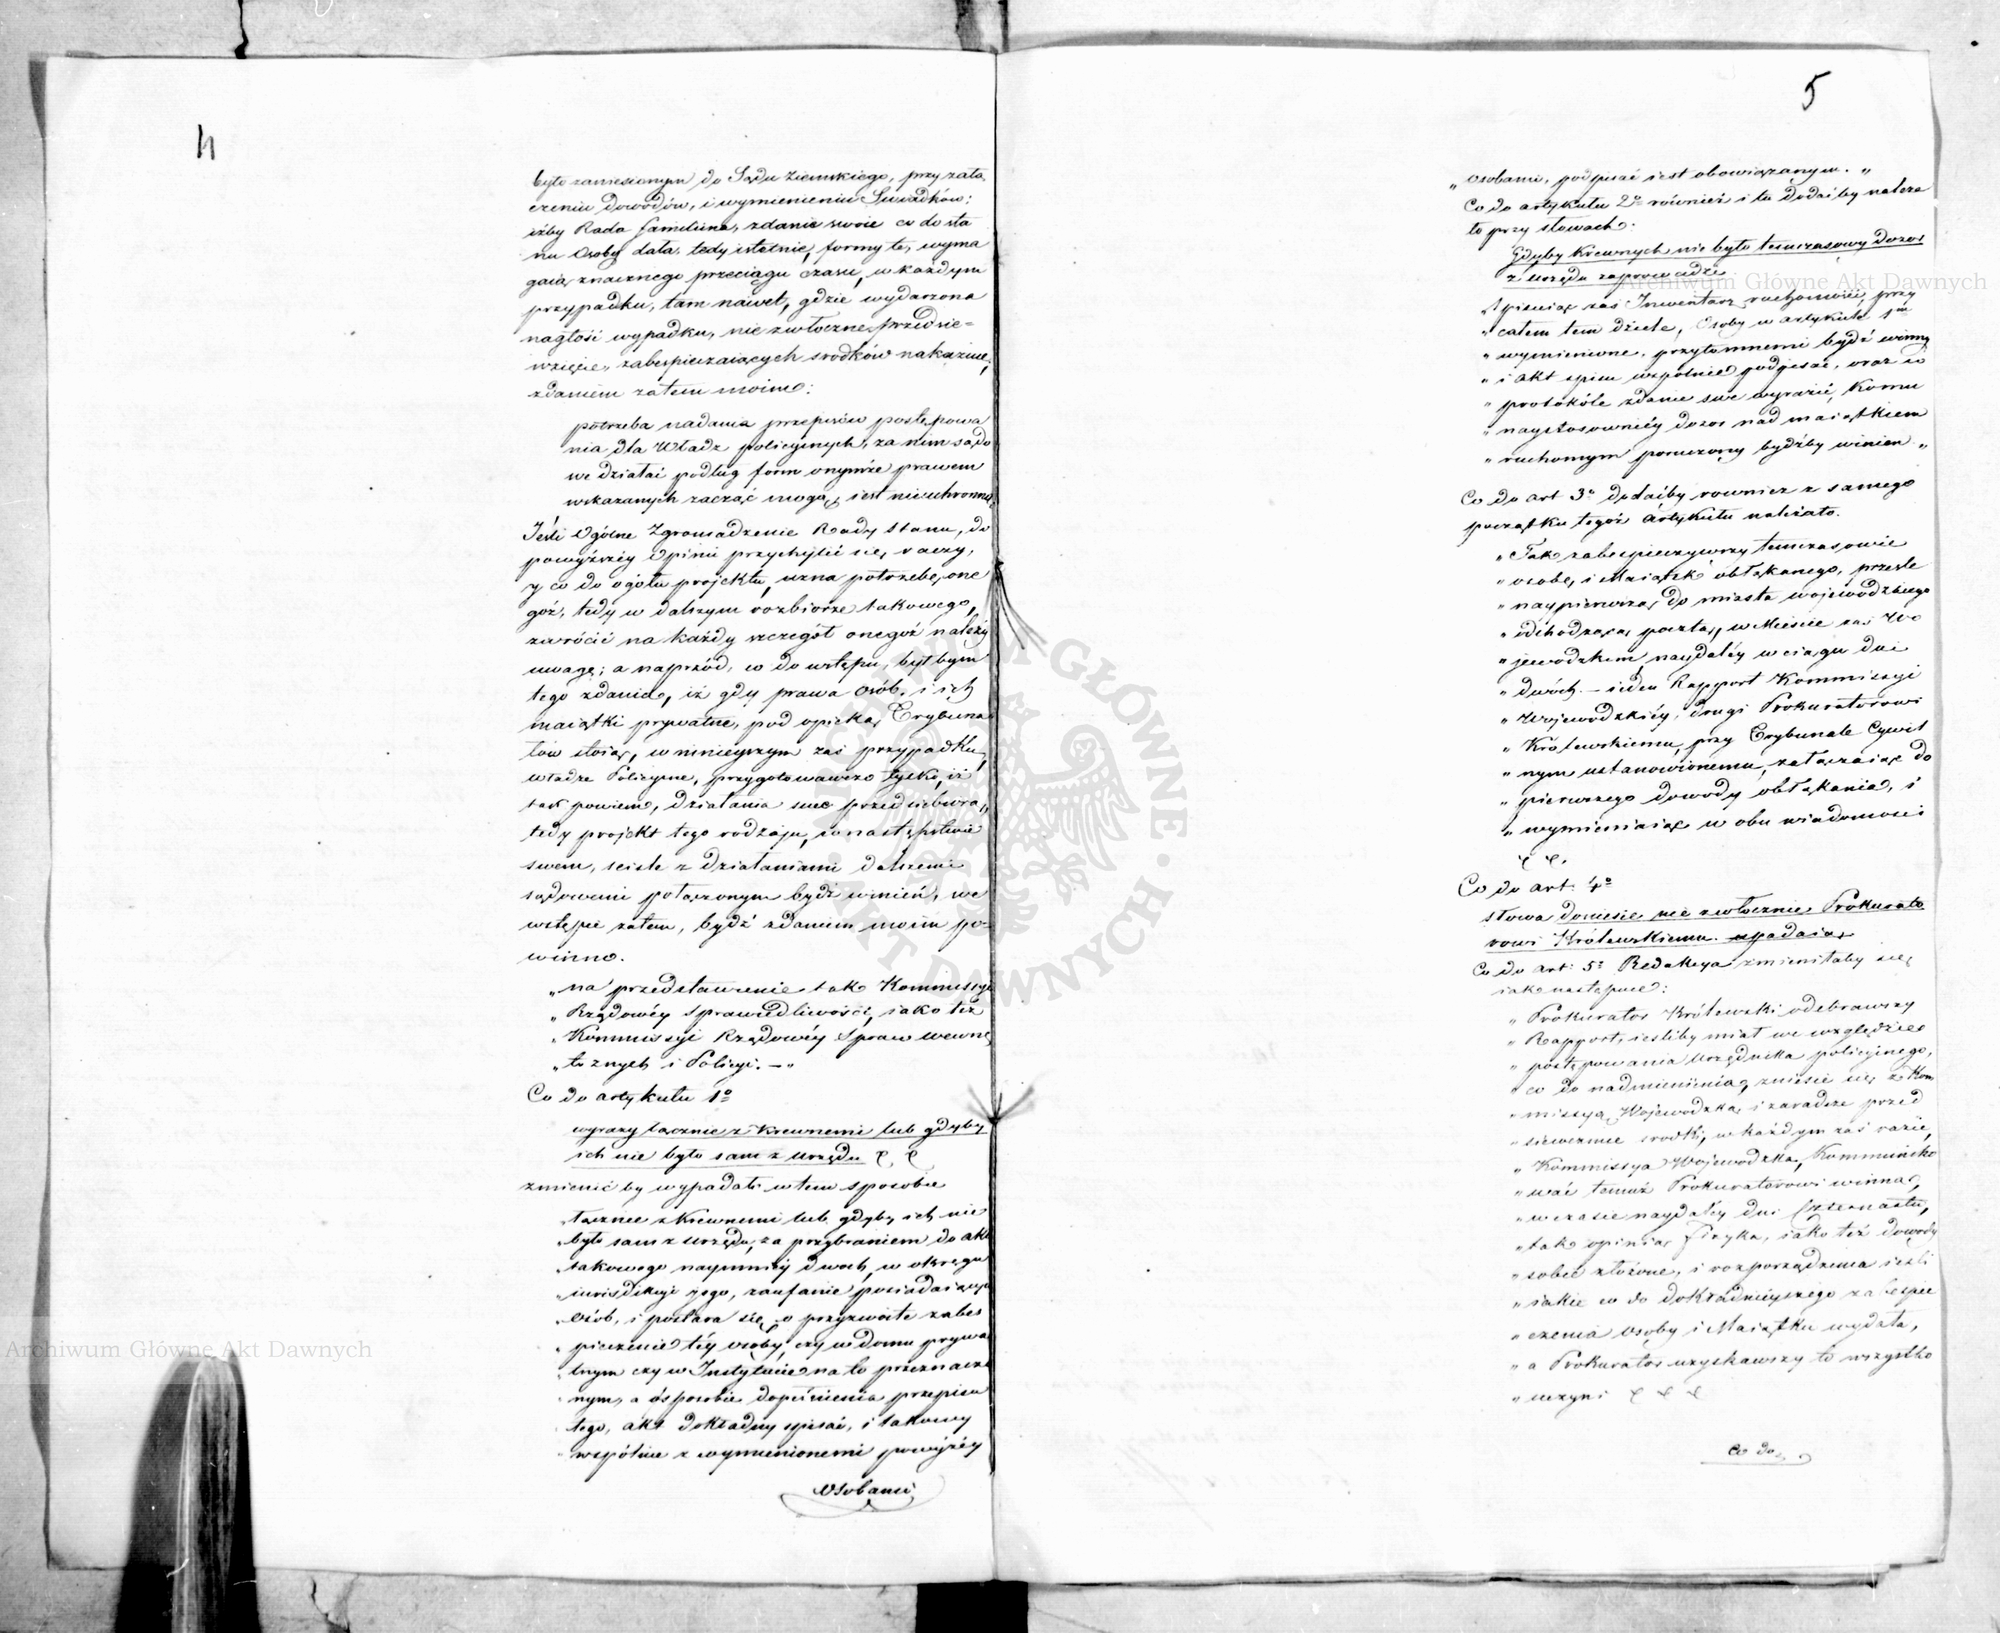 4
było zaniesionym do Sądu Ziemskiego, przy zała
czeniu dowodów, i wymienieniu Swiadków;
iżby Rada familijna, zdanie swoie co do sta
nu Osoby dała, tedy istotnie, formy te, wyma
gaią znacznego przeciągu czasu, w każdym
przypadku, tam nawet, gdzie wydarzona
nagłość wypadku, nie zwłoczne przedsie=
wzięcie zabespieczaiących srodków nakazuie,
zdaniem zatem moim:
potrzeba nadania przepisów postępowa
nia dla Władz policyinych, za nim sądo
we działać podług form onymże prawem
wskazanych zacząć mogą, iest nieuchronna.
Jeśli Ogólne Zgromadzenie Rady Stanu, do
powyższéy Opinii przychylić się raczy,
y co do ogółu projektu, uzna potrzebę one
goż, tedy w dalszym rozbiorze takowego,
zwrócić na każdy szczegół onegoż należy
uwagę; a naprzód, co do wstępu, był bym
tego zdania, iż gdy prawa osób, i ich
maiątki prywatne, pod opieką Trybuna
łów stoią, w ninieyszym zaś przypadku,
władze Policyine, przygotowawczo tylko, iż
tak powiem, działania swe przedsiebiorą,
tedy projekt tego rodzaju, w następstwie
swem, sciśle z działaniami dalszemi
sądowemi połączonym bydź winień, we
wstępie zatem, bydź zdaniem moim po=
winno.
„na przedstawienie tak Kommissyi
„Rządowéy Sprawiedliwości, iako też
„Kommissyi Rządowéy Spraw wewnę
„trznych i Policyi. —„
Co do artykułu 1o
wyrazy łącznie z Krewnemi lub gdyby
ich nie było sam z urzędu
zmienić by wypadało w tem sposobie
„łącznie z Krewnemi lub gdyby ich nie
„było sam z urzędu, za przybraniem do aktu
„takowego naymniéy dwoch, w okręgu
„iurisdikcyi jego, zaufanie posiadaiących
„Osób, i postara się o przyzwoite zabes
„pieczenie téy osoby, czy w domu prywa
„tnym czy w Instytucie na to przeznaczo
„nym, a o sposobie dopełnienia przepisu
„tego, akt dokładny spisać, i takowy
„wspólnie z wymienionemi powyżéy
Osobami
5
„osobami, podpisać iest obowiązanym. „
Co do artykułu 2o również i tu dodać by należa
ło przy słowach:
Gdyby Krewnych nie było tymczasowy dozor
z urzędu zaprowadzi
„Spisuiąc zaś Inwentarz ruchomości, przy
„całem tem dziele, Osoby w artykule 1m
„wymienione, przytomnemi bydź winny
„i akt spisu wspólnie podpisać, oraz w
„protokóle zdanie swe wyrazić, Komu
„naystosowniéy dozor nad maiątkiem
„ruchomym poruczony bydźby winien.„
Co do art 3o dodać by rownież z samego
początku tegoż artykułu należało.
„Tak zabespieczywszy tymczasowie
„osobę i Maiątek obłąkanego, prześle
„naypierwszą do miasta wojewodzkiego
„odchodzącą pocztą, w Mieście zaś Wo
„jewodzkiem, naydaléy w ciągu dni
„dwóch — ieden Rapport Kommissyi
„Wojewodzkiéy, drugi Prokuratorowi
„Królewskiemu, przy Trybunale Cywil
„nym ustanowionemu, załączaiąc do
„pierwszego dowody obłąkania, i
„wymieniaiąc w obu wiadomości
Co do art: 4o
słowa doniesie nie zwłocznie Prokurato
rowi Królewskiemu. upadaią
Co do art: 5o Redakcya zmieniłaby się
iak następuie:
„Prokurator Królewski odebrawszy
„Rapport, iesliby miał we względzie
„postępowania urzędnika policyinego,
„co do nadmienienia, zniesie się z Kom
„missyą Wojewodzką i zaradcze przed
„siewezmie srodki, w każdym zaś razie,
„Kommissya Wojewodzka, Kommuniko
„wać temuż Prokuratorowi winna,
„w czasie naydaléy dni Czternastu,
„tak opinią fizyka, iako też dowody
„sobie złożone, i rozporządzenia ieśli
„iakie co do dokładnieyszego zabespie
„czenia osoby i Maiątku wydała,
„a Prokurator uzyskawszy to wszystko
„uczyni
Co do
Archiwum Główne Akt Dawnych
Archiwum Główne Akt Dawnych
ARCHIWUM GŁÓWNE AKT DAWNYCH